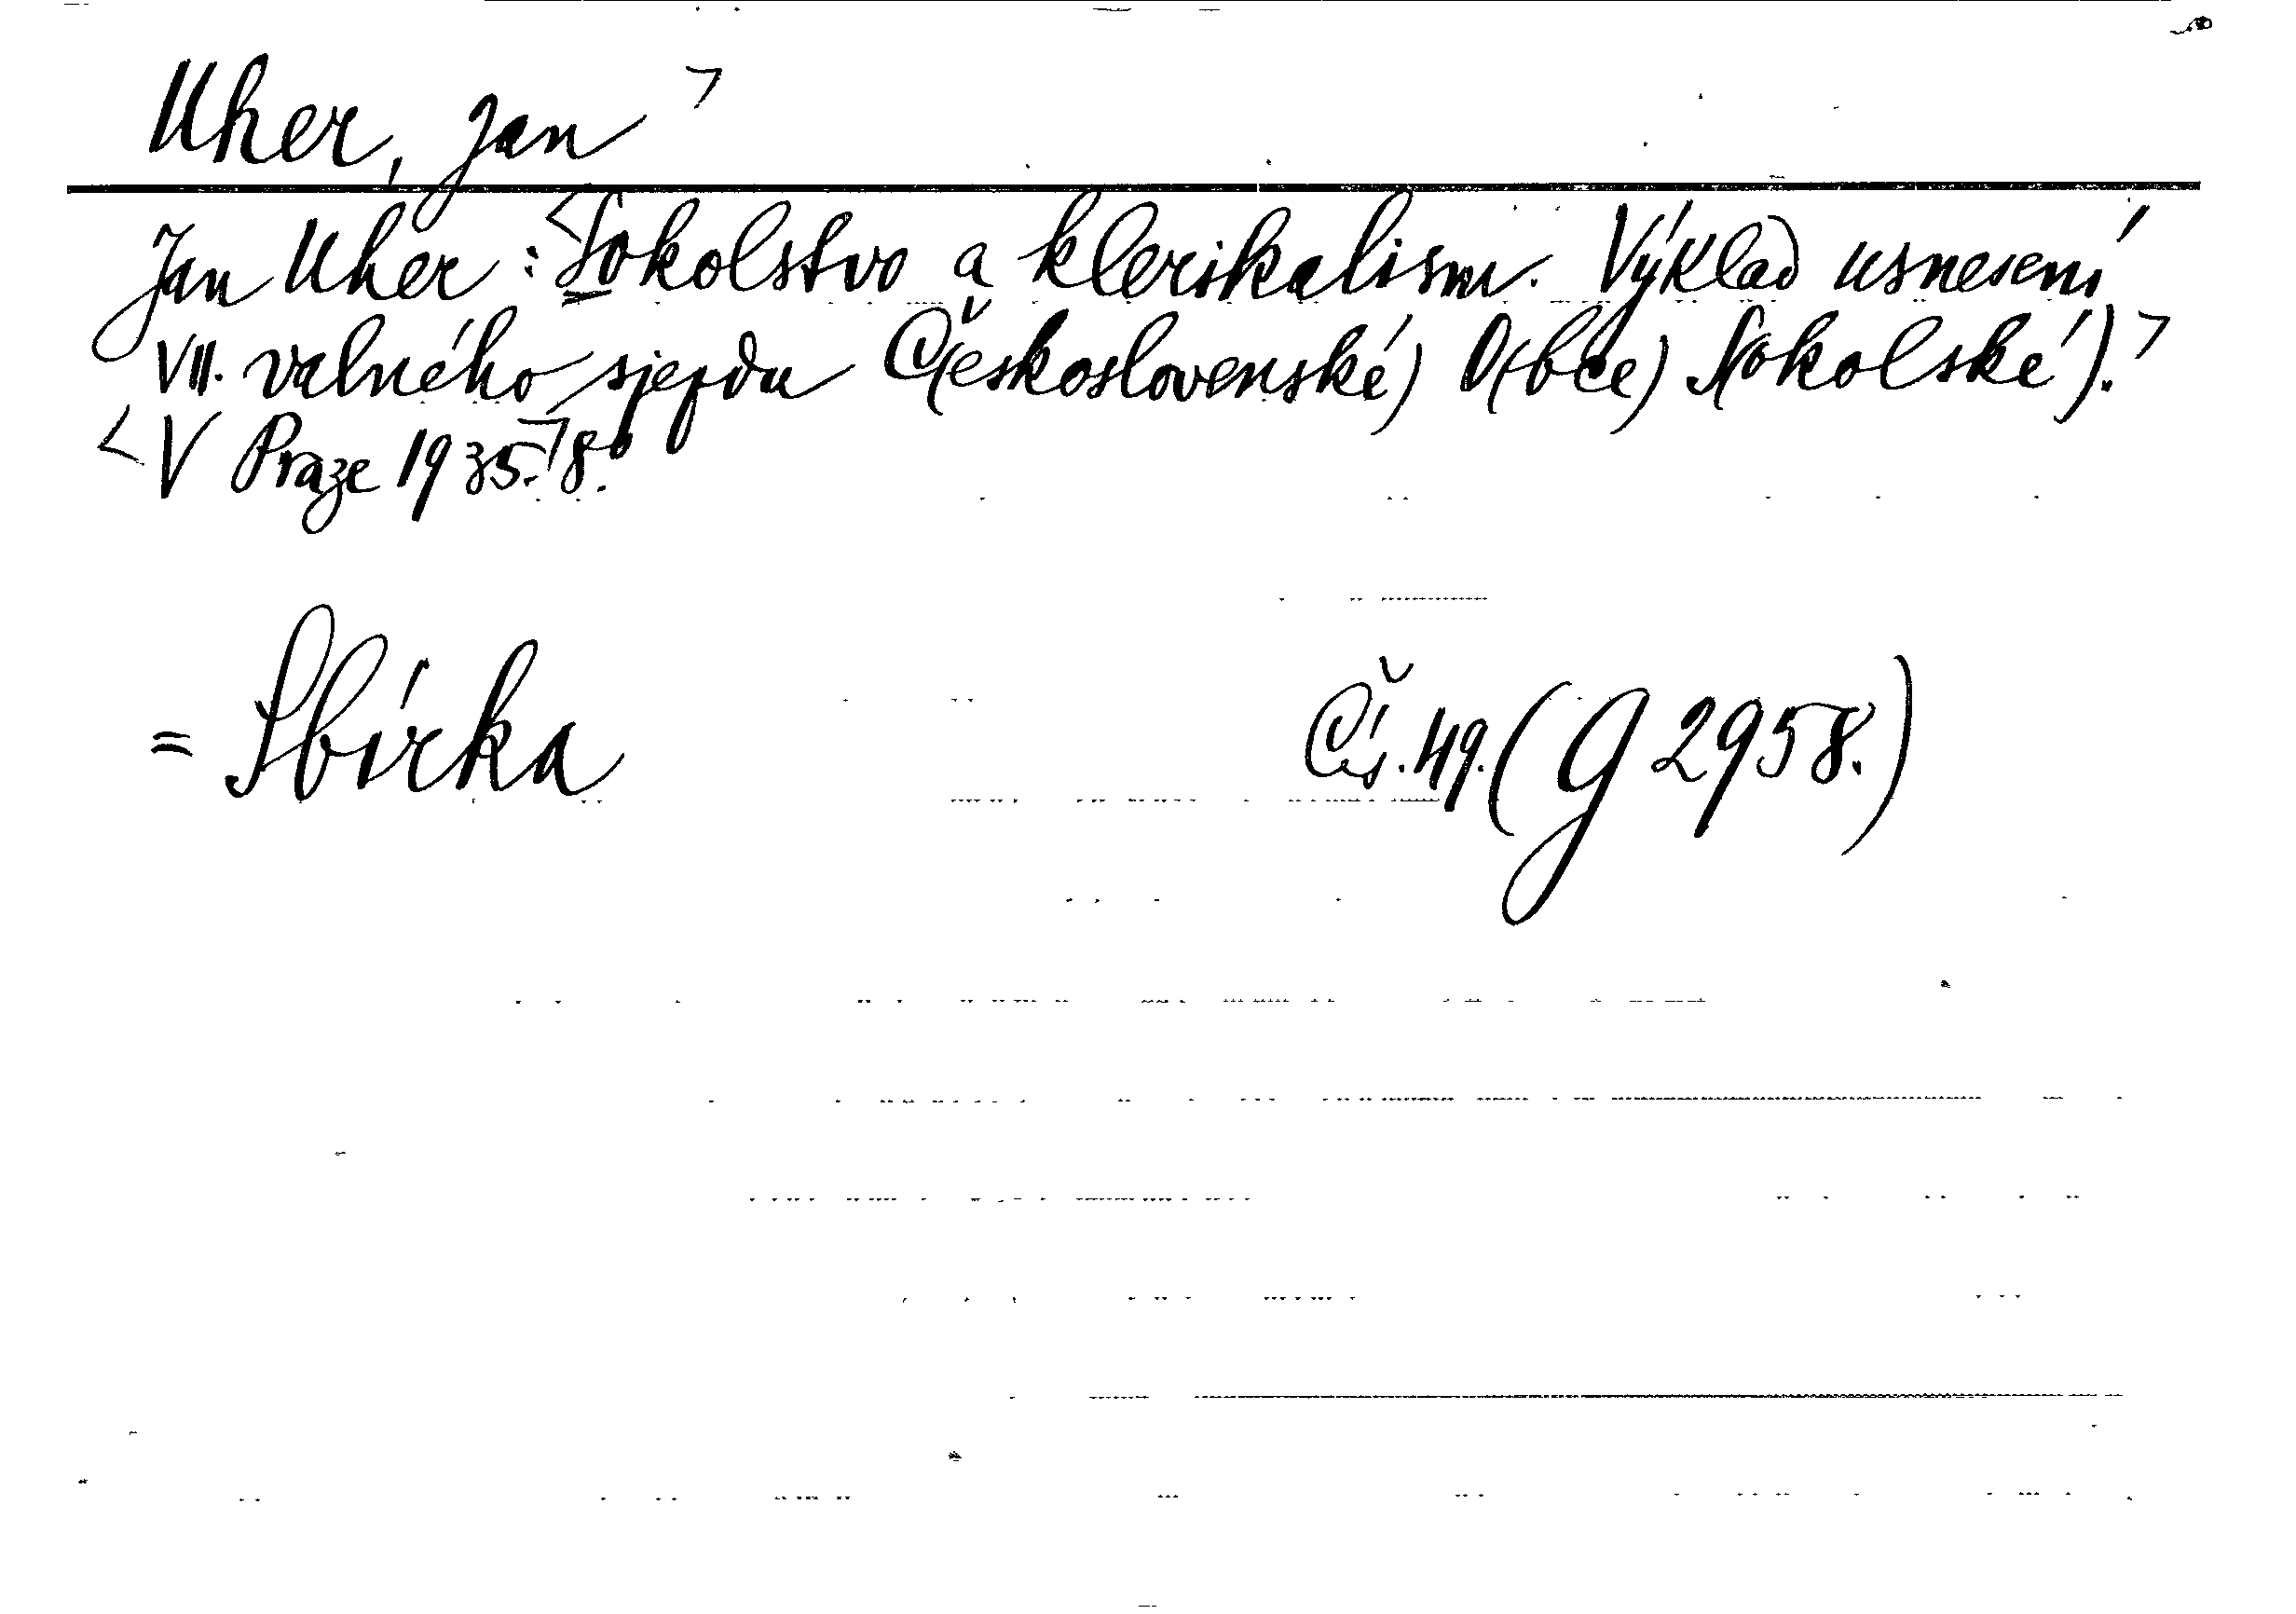 Uher, Jan ㄱ
Jan Uher : <Sokolstvo a klerikalism. Výklad usnesení
VII. valného sjezdu Č(eskoslovenské) O(bce) S(okolské).ㄱ
<V Praze 1935.ㄱ 8°.
= Sbírka Čís. 49. (G 2958.)